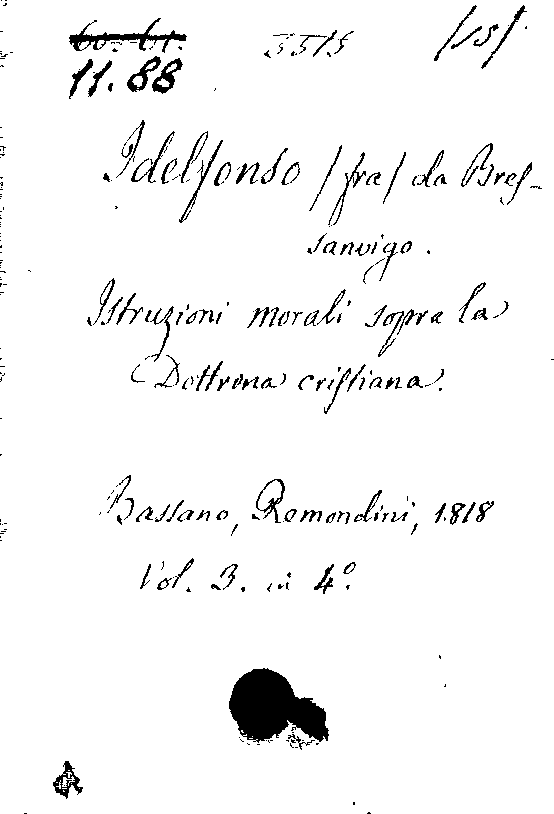 60.-61. 5515 /15/.
11.88
Idelfonso /fra/ da Bres-
sanvigo.
Istruzioni morali sopra la
Dottrina cristiana.
Bassano, Remondini, 1818
Vol. 3. in 4º.